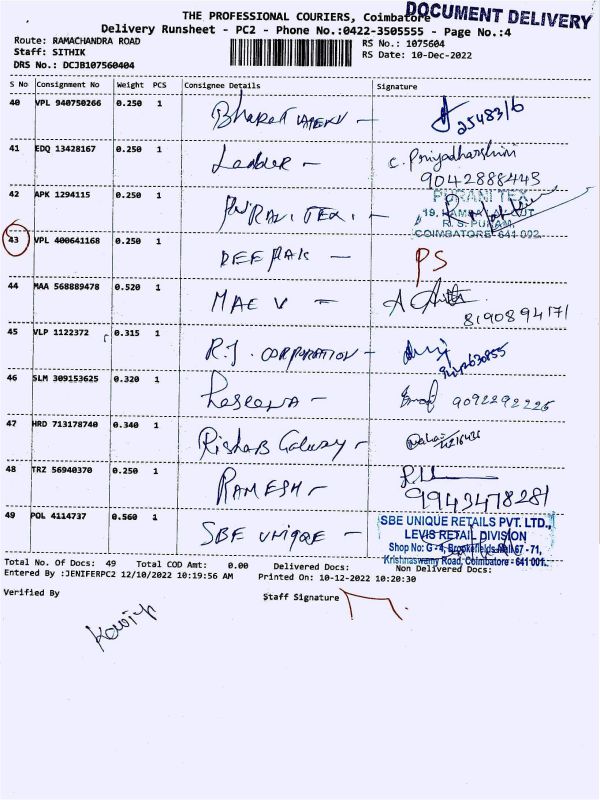 THE PROFESSIONAL COURIERS, Coimbatore
DOCUMENT DELIVERY
Delivery Runsheet - PC2 - Phone No.:0422-3505555 - Page No.:4
Route: RAMACHANDRA ROAD
RS No.: 1075604
Staff: SITHIK
RS Date: 10-Dec-2022
DRS No.: DCJB107560404
S No Consignment No Weight PCS Consignee Details Signature
40 VPL 940750266 0.250 1 Bharat
2548316
41 EDQ 13428167 0.250 1 Ladder - C. Priyadharshini
9042888443
42 APK 1294115 0.250 1 PURANI TEX. - PURANI TEX
19, RAMALAYOUT
R. S. PURAM,
COIMBATORE-641 002.
43 VPL 400641168 0.250 1 DEEPAK - PS
44 MAA 568889478 0.520 1 MAEV - A
8190894171
45 VLP 1122372 0.315 1 R.J. CORPORATION -
46 SLM 309153625 0.320 1 9092292226
47 HRD 713178740 0.340 1 Rishabs Galaxy -
48 TRZ 56940370 0.250 1 RAMESH -
9943478281
49 POL 4114737 0.560 1 SBE UNIQUE - SBE UNIQUE RETAILS PVT. LTD.,
LEVIS RETAIL DIVISION
Shop No: G - 4, Brookefields Mall 67 - 71,
Krishnaswamy Road, Coimbatore - 641 001.
Total No. Of Docs: 49 Total COD Amt: 0.00 Delivered Docs: Non Delivered Docs:
Entered By :JENIFERPC2 12/10/2022 10:19:56 AM Printed On: 10-12-2022 10:20:30
Verified By Staff Signature